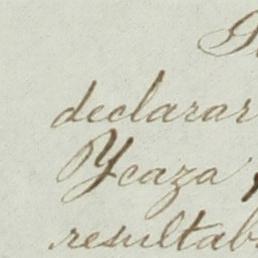 declarar
Ycaza
resultab